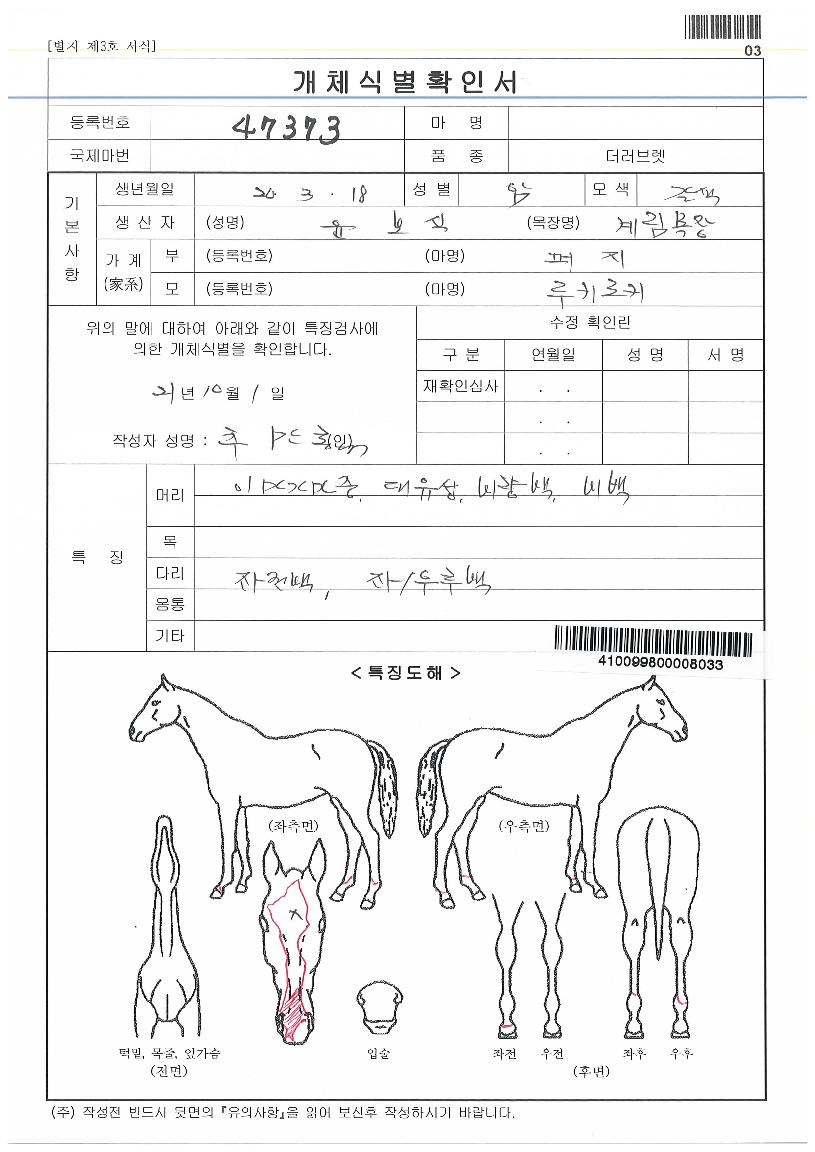 [별지 제3호 서식]
03
개체식별확인서
등록번호 47373 마 명
국제마번 품 종 더러브렛
기본사항
생년월일 20. 3. 18 성별 암 모색
생산자 (성명) 윤 보 (목장명) 계림목장
가계 (家系) 부 (등록번호) (마명) 퍼지
모 (등록번호) (마명) 루키루키
위의 말에 대하여 아래와 같이 특징검사에
의한 개체식별을 확인합니다.
21년 10월 1일
작성자 성명 : 추 (인)
수정 확인란
구분 연월일 성명 서명
재확인심사 . .
. .
. .
특 징
머리 대유성, 비량백, 비백
목
다리 좌전백, 좌/우후백
몸통
기타
410099800008033
<특징도해>
(좌측면) (우측면)
턱밑, 목줄, 앞가슴
(전면)
입술
좌전 우전 좌후 우후
(후면)
(주) 작성전 반드시 뒷면의 『유의사항』을 읽어 보신후 작성하시기 바랍니다.